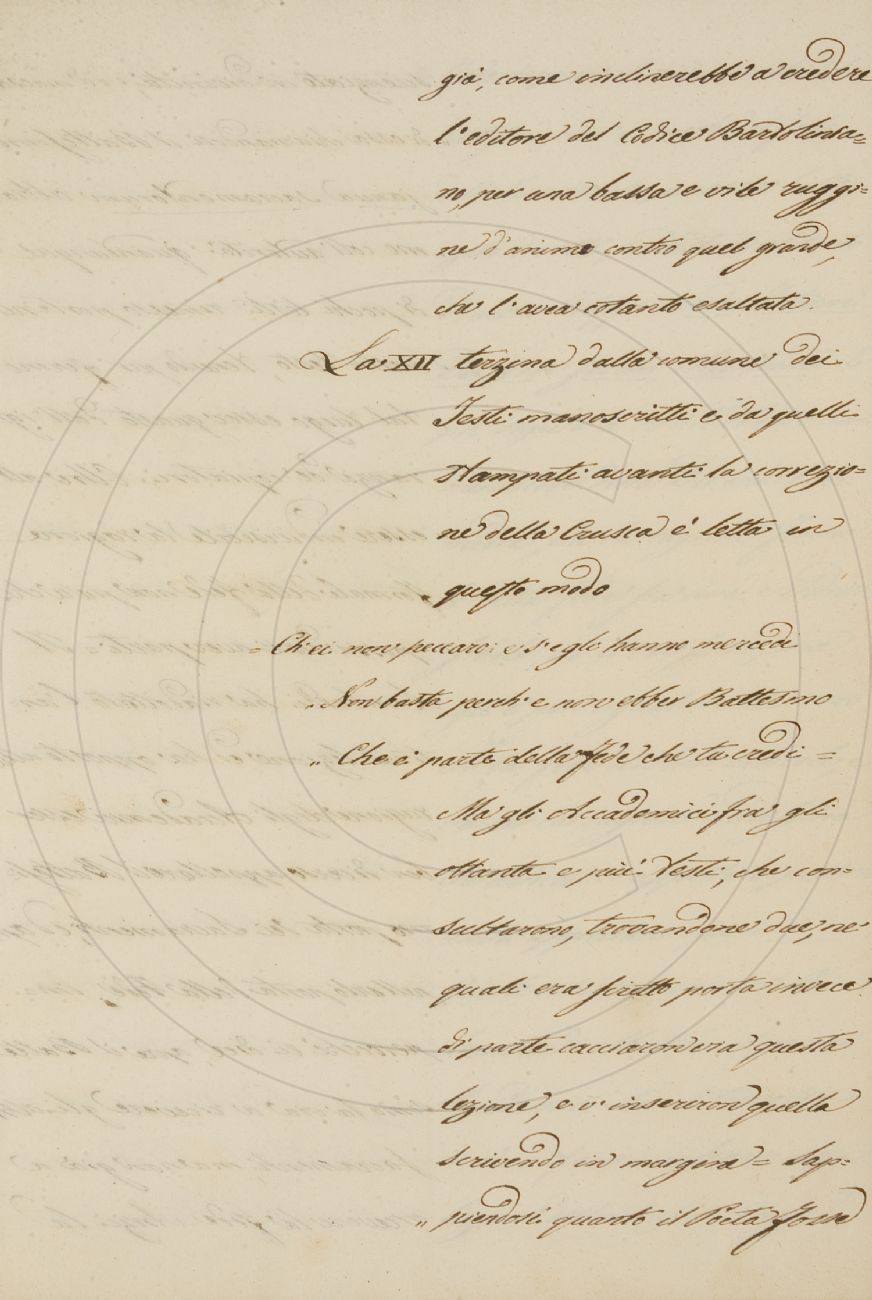 già, come inclinerebbe a credere
l'editore del Codice Bartolinia=
no, per una bassa e vile ruggi=
ne d'animo contro quel grande,
che l'avea cotanto esaltata.
La XII terzina dalla comune dei
Testi manoscritti e da quelli
stampati avanti la correzio=
ne della Crusca è letta in
questo modo
= Ch'ei non peccaro: e s'egli hanno mercedi
„ Non basta perch'e non ebber Battesmo
„ Che è parte della fede che tu credi =
Ma gli Accademici fra gli
ottanta e più Testi, che con=
sultarono, trovandone due, ne'
quali era scritto porta invece
di parte cacciaron via questa
lezione, e v'inseriron quella
scrivendo in margine = Sap=
„ piendosi quanto il Poeta fosse